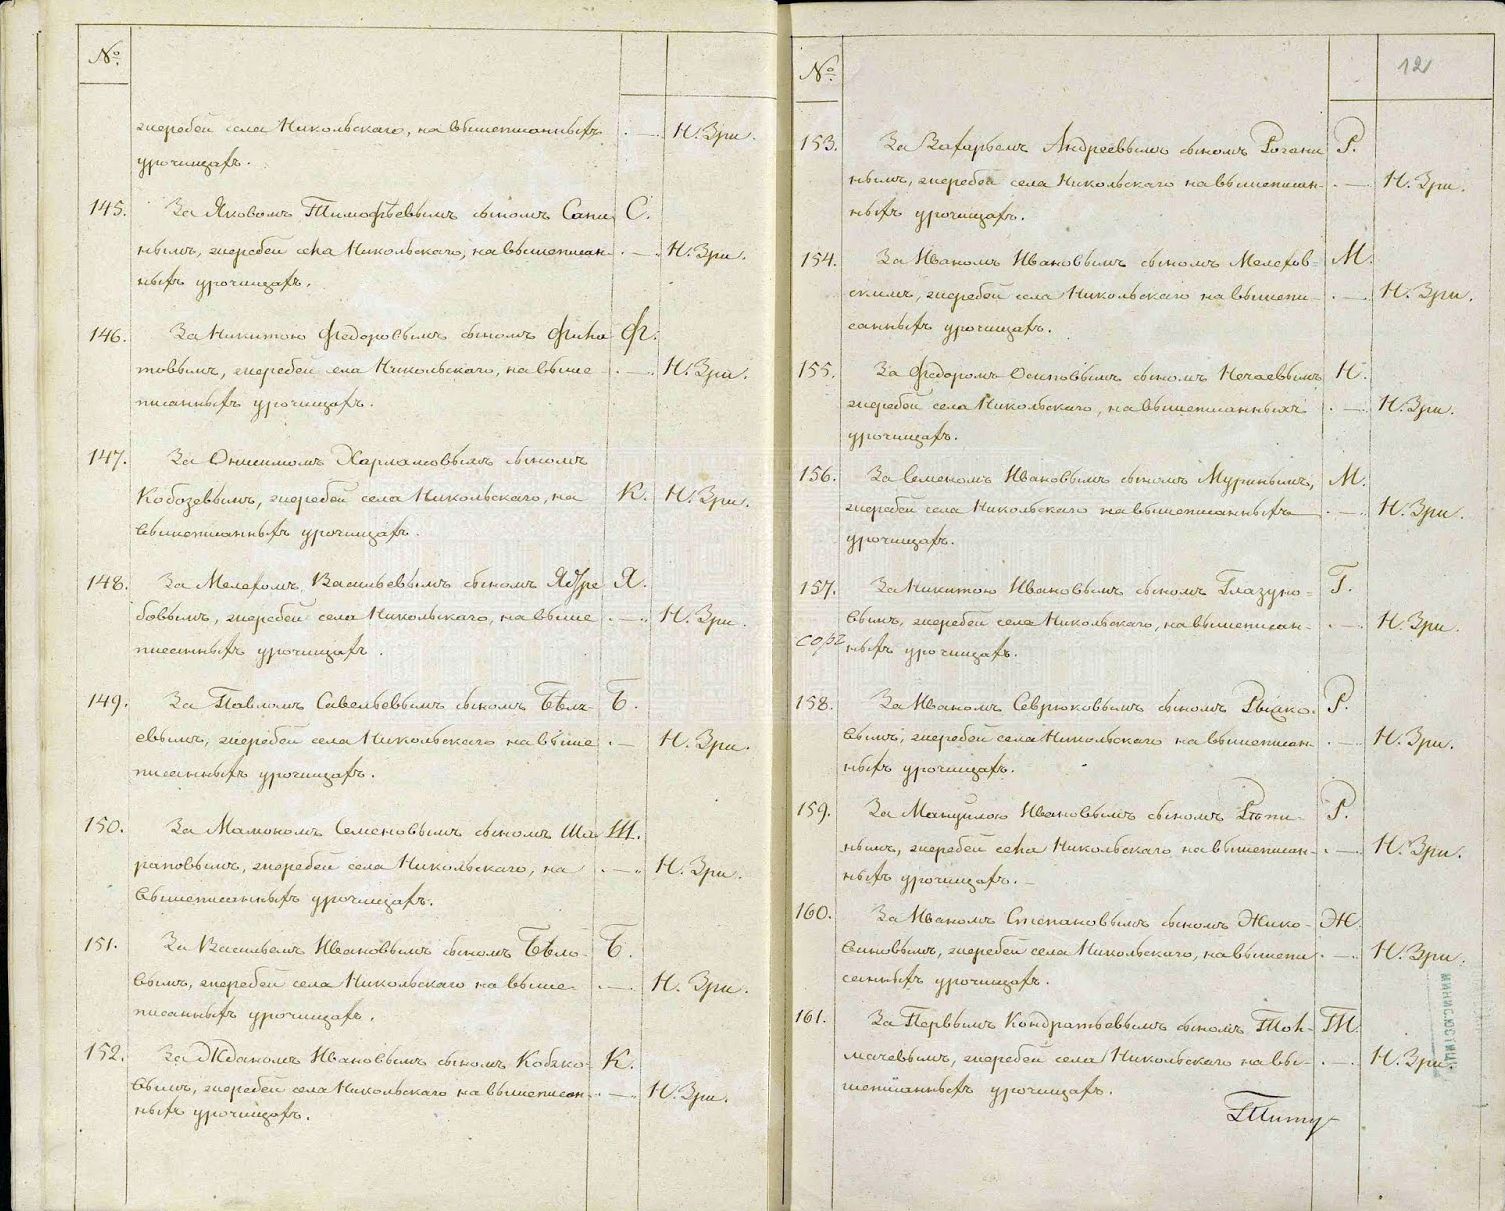 №
жеребей села Никольскаго, на вышеписанныхъ . — . Н. Зри.
урочищахъ.
145. За Яковомъ Тимофѣевымъ сыномъ Сани С.
нымъ, жеребей села Никольскаго, на вышеписан- . — . Н. Зри.
ныхъ урочищахъ.
146. За Никитою Федоровымъ сыномъ Фила Ф.
товымъ, жеребей села Никольскаго, на выше . — . Н. Зри.
писанныхъ урочищахъ.
147. За Онисимомъ Харламовымъ сыномъ
Кобозевымъ, жеребей села Никольскаго, на К. Н. Зри.
вышеписанныхъ урочищахъ.
148. За Мелехомъ Васильевымъ сыномъ Ядре Я.
бовымъ, жеребей села Никольскаго, на выше . — . Н. Зри.
писанныхъ урочищахъ.
149. За Павломъ Савельевымъ сыномъ Бѣля- Б.
евымъ, жеребей села Никольскаго на выше . — Н. Зри.
писанныхъ урочищахъ.
150. За Мамономъ Семеновымъ сыномъ Ша Ш.
раповымъ, жеребей села Никольскаго, на . — . Н. Зри.
вышеписанныхъ урочищахъ.
151. За Васильемъ Ивановымъ сыномъ Бѣло- Б.
вымъ, жеребей села Никольскаго на выше- . — . Н. Зри.
писанныхъ урочищахъ.
152. За Жданомъ Ивановымъ сыномъ Кобяко- К.
вымъ, жеребей села Никольскаго на вышеписан- . — . Н. Зри.
ныхъ урочищахъ.
№ 12
153. За Захарьемъ Андреевымъ сыномъ Рогани Р.
нымъ, жеребей села Никольскаго на вышеписан- . — . Н. Зри.
ныхъ урочищахъ.
154. За Иваномъ Ивановымъ сыномъ Мелехов- М.
скимъ, жеребей села Никольскаго на вышепи- . — . Н. Зри.
санныхъ урочищахъ.
155. За Федоромъ Осиповымъ сыномъ Нечаевымъ Н.
жеребей села Никольскаго, на вышеписанныхъ . — . Н. Зри.
урочищахъ.
156. За Семеномъ Ивановымъ сыномъ Муринымъ, М.
жеребей села Никольскаго на вышеписанныхъ . — . Н. Зри.
урочищахъ.
157. За Никитою Ивановымъ сыномъ Глазуно- Г.
вымъ, жеребей села Никольскаго, на вышеписан- . — . Н. Зри.
ныхъ урочищахъ.
158. За Иваномъ Севрюковымъ сыномъ Рышко- Р.
вымъ, жеребей села Никольскаго на вышеписан- . — . Н. Зри.
ныхъ урочищахъ.
159. За Мануилою Ивановымъ сыномъ Рѣпи- Р.
нымъ, жеребей села Никольскаго на вышеписан- . — . Н. Зри.
ныхъ урочищахъ. –
160. За Иваномъ Степановымъ сыномъ Жико- Ж.
виновымъ, жеребей села Никольскаго, на вышепи . — . Н. Зри.
санныхъ урочищахъ.
161. За Первымъ Кондратьевымъ сыномъ Тол- Т.
мачевымъ, жеребей села Никольскаго на вы- . — . Н. Зри.
шеписанныхъ урочищахъ.
Титу-